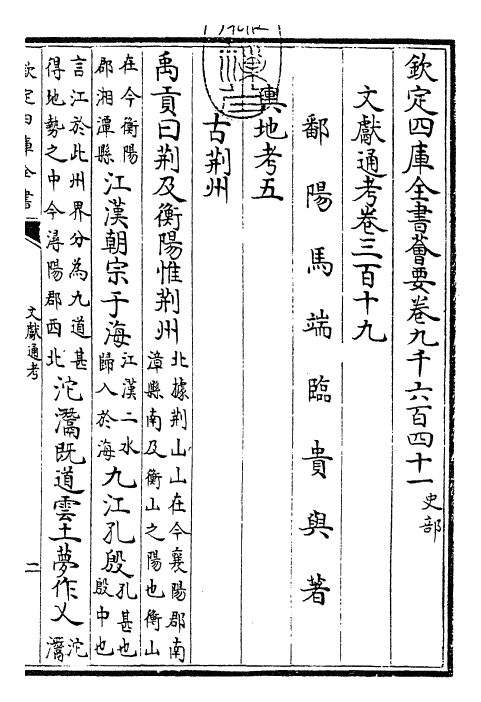 欽定四庫全書薈要卷九千六百四十一 史部
文獻通考卷三百十九
鄱陽馬端臨貴與著
輿地考五
古荆州
禹貢曰荆及衡陽惟荆州 北據荆山山在今襄陽郡南漳縣南及衡山之陽也衡山
在今衡陽郡湘潭縣 江漢朝宗于海 江漢二水歸入於海 九江孔殷 孔甚也殷中也
言江於此州界分為九道甚得地勢之中今潯陽郡西北 沱灊既道雲土夢作乂 沱灊
欽定四庫全書
文獻通考